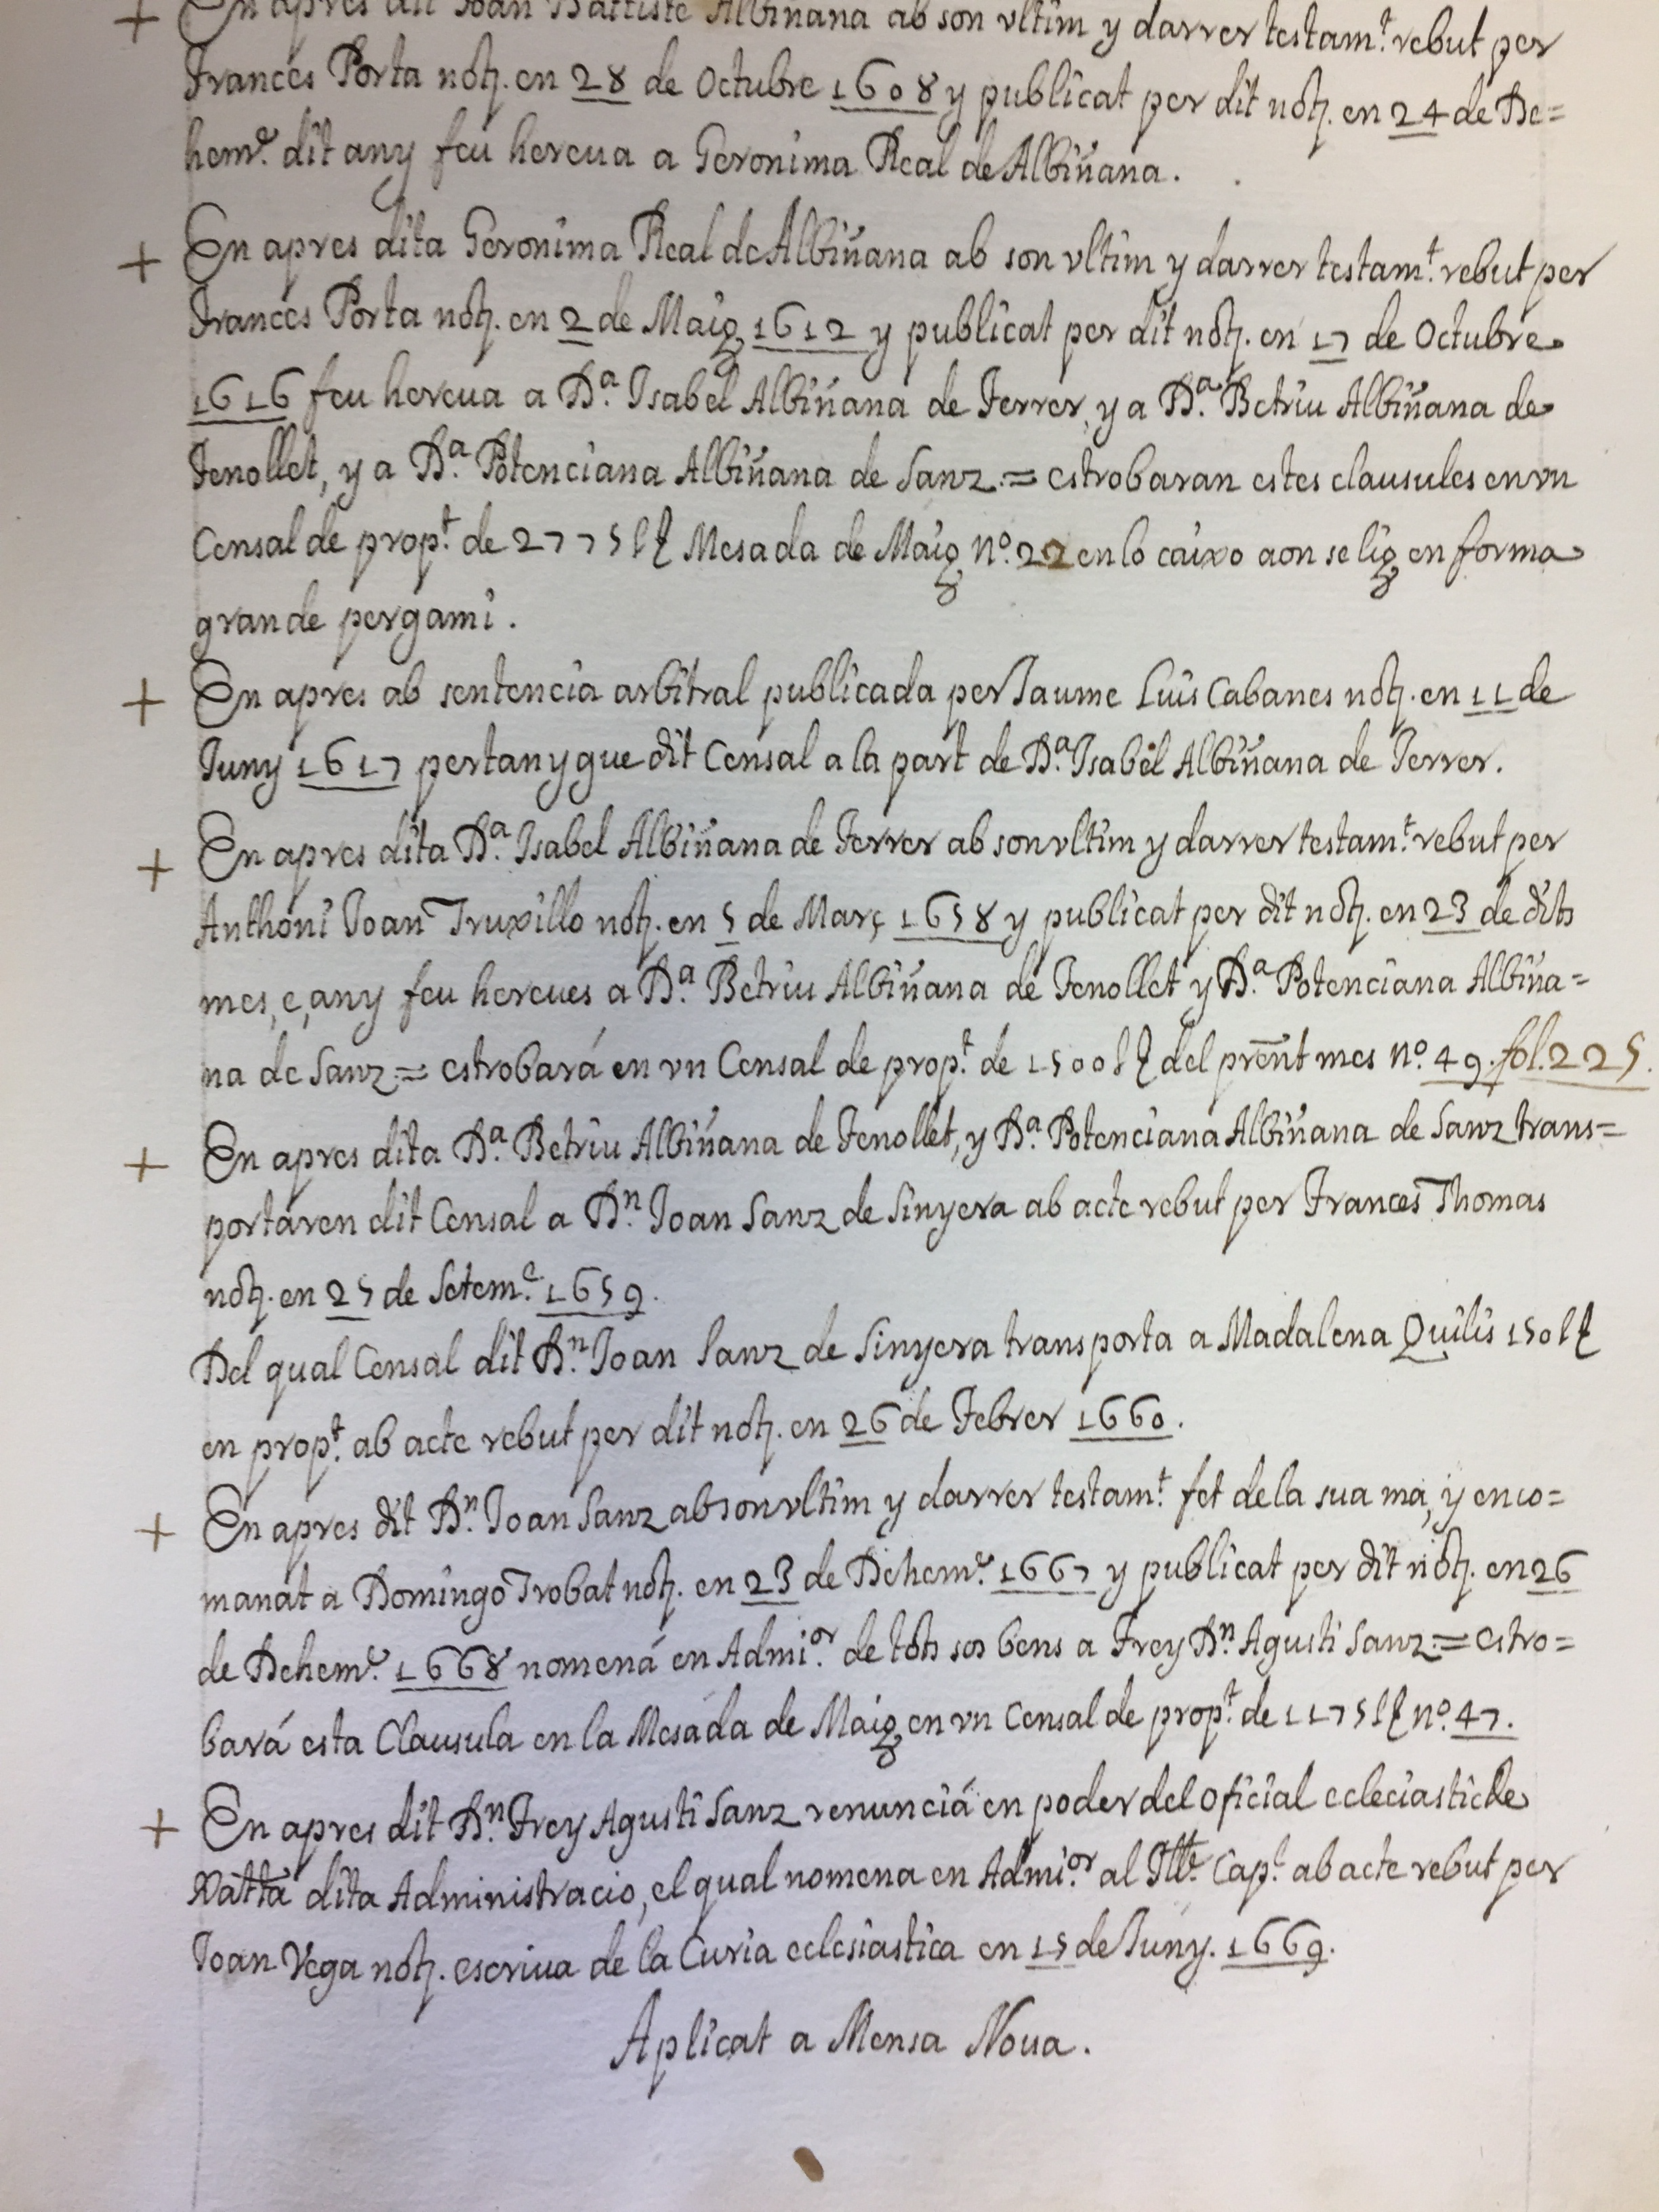 + En apres dit Joan Battiste Albiñana ab son vltim y darrer testam.t rebut per
Frances Porta not. en 28 de Octubre 1608 y publicat per dit not. en 24 de De=
hem.e dit any feu hereua a Geronima Real de Albiñana.
+ En apres dita Geronima Real de Albiñana ab son vltim y darrer testam.t rebut per
Frances Porta not. en 2 de Maig 1612 y publicat per dit not. en 17 de Octubre
1616 feu hereua a D.a Isabel Albiñana de Ferrer, y a D.a Betriu Albiñana de
Fenollet, y a D.a Potenciana Albiñana de Sanz.= estrobaran estes clausules en vn
Censal de prop.t de 2775 l ẜ Mesada de Maig N.o 22 en lo caixo aon se lig en forma
grande pergami.
+ En apres ab sentencia arbitral publicada per Jaume Luis Cabanes not. en 11 de
Juny 1617 pertanygue dit Censal a la part de D.a Isabel Albiñana de Ferrer.
+ En apres dita D.a Isabel Albiñana de Ferrer ab son vltim y darrer testam.t rebut per
Anthoni Joan Truxillo not. en 5 de Març 1658 y publicat per dit not. en 23 de dits
mes, e, any feu hereues a D.a Betriu Albiñana de Fenollet y D.a Potenciana Albiña=
na de Sanz.= estrobará en vn Censal de prop.t de 1500 l ẜ del preñt mes N.o 49. fol. 225.
+ En apres dita D.a Betriu Albiñana de Fenollet, y D.a Potenciana Albiñana de Sanz trans=
portaren dit Censal a D.n Joan Sanz de Sinyera ab acte rebut per Frances Thomas
not. en 25 de Setem.e 1659.
Del qual Censal dit D.n Joan Sanz de Sinyera transporta a Madalena Quilis 150 l ẜ
en prop.t ab acte rebut per dit not. en 26 de Febrer 1660.
+ En apres dit D.n Joan Sanz ab son vltim y darrer testam.t fet de la sua ma, y enco=
manat a Domingo Trobat not. en 23 de Dehem.e 1667 y publicat per dit not. en 26
de Dehem.e 1668 nomená en Admi.or de tots sos bens a Frey D.n Agusti Sanz.= estro=
bará esta Clausula en la Mesada de Maig en vn Censal de prop.t de 1175 l ẜ n.o 47.
+ En apres dit D.n Frey Agusti Sanz renunciá en poder del oficial eclesiastich de
Xattá dita Administracio, el qual nomena en Admi.or al Ill.e Cap.t ab acte rebut per
Joan Vega not. escriua de la Curia eclesiastica en 15 de Juny. 1669.
Aplicat a Mensa Noua.